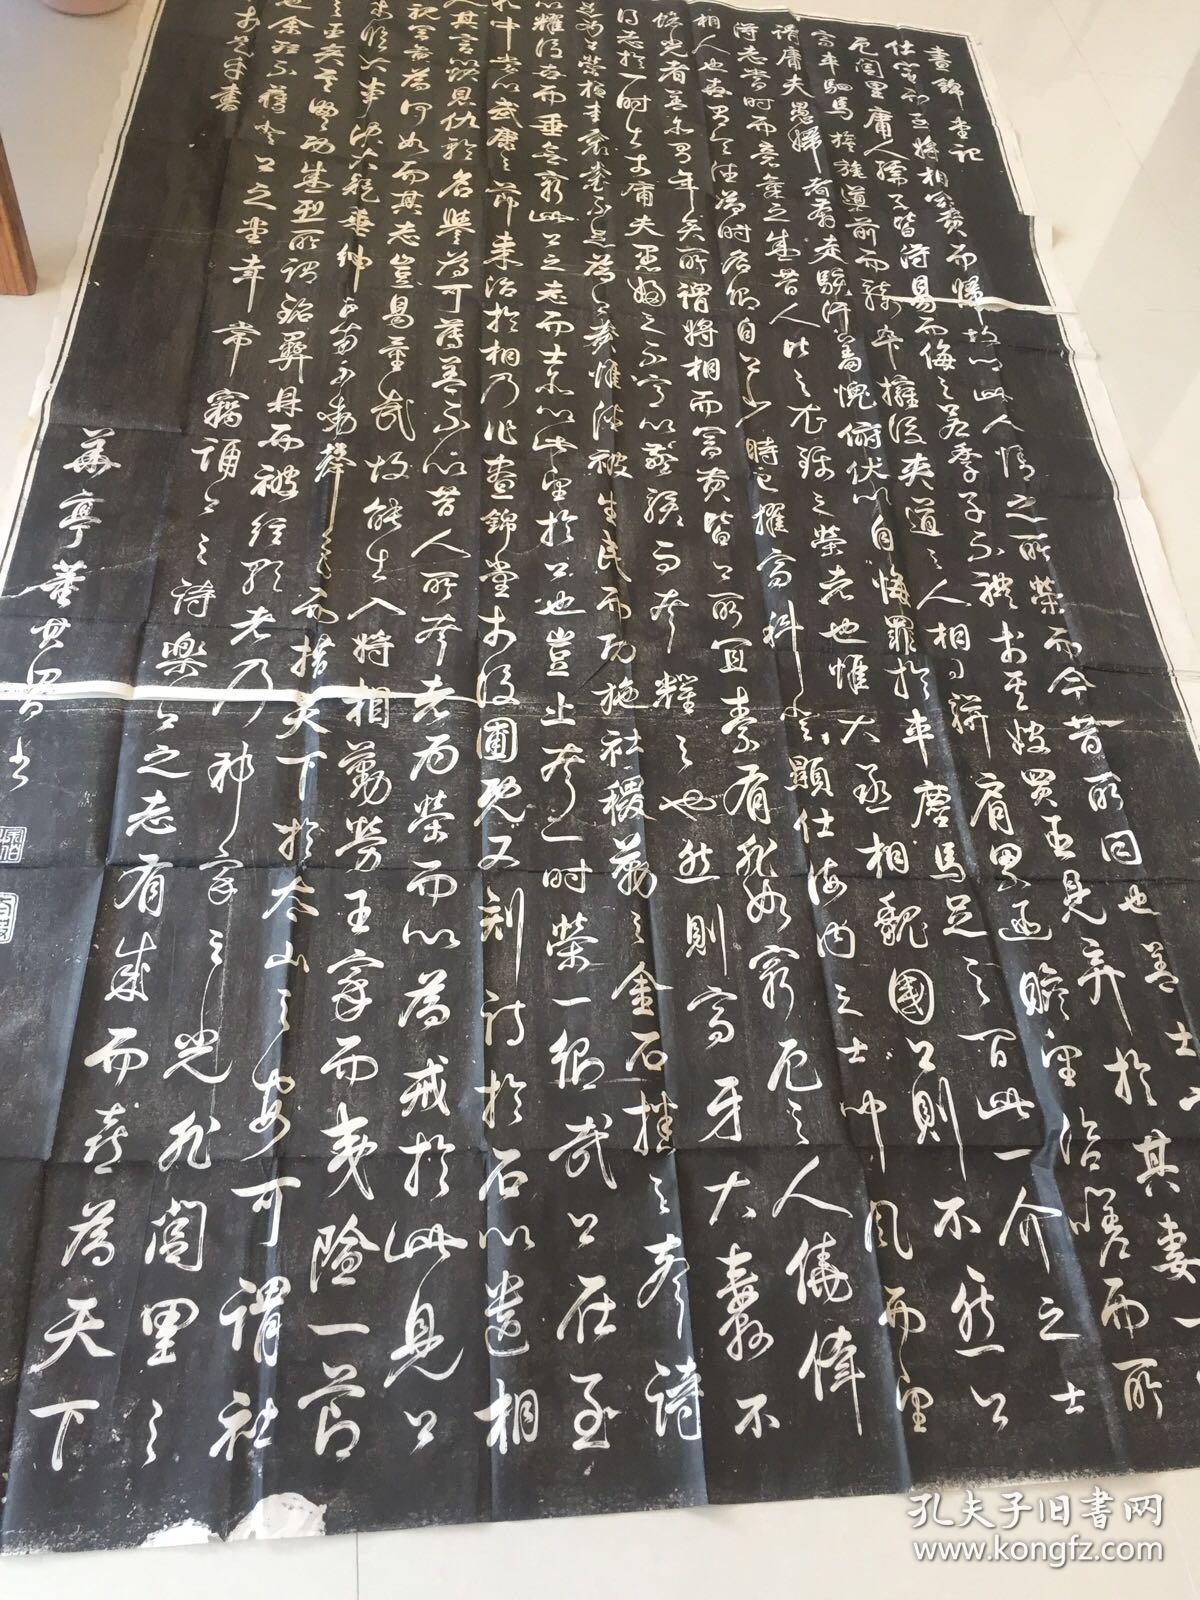 晝錦堂記
仕宦而至將相富貴而歸故鄉此人情之所榮而今昔所同也蓋士方
厄閭里庸人孺子皆得易而侮之若季子不禮於其嫂買臣見棄於其妻一
高車駟馬旗旄導前而騎卒擁後夾道之人相與駢肩累迹瞻望咨嗟而所
謂庸夫愚婦者奔走駭汗羞愧俯伏以自悔罪於車塵馬足之間此一介之士
得志當時而意氣之盛昔人比之衣錦之榮者也惟大丞相魏國公則不然公
相人也世有令德為時名卿自公少時已擢高科登顯仕海內之士聞下風而望
餘光者蓋亦有年矣所謂將相而富貴皆公所宜素有非如窮厄之人僥倖
得志於一時出於庸夫愚婦之不意以驚駭而夸耀之也然則高牙大纛不
足為公榮桓圭袞冕不足為公貴惟德被生民而功施社稷勒之金石播之聲詩
以耀後世而垂無窮此公之志而士亦以此望於公也豈止夸一時榮一鄉哉公在至
和中嘗以武康之節來治於相乃作晝錦堂於後圃既又刻詩於石以遺相
人其言以快恩仇矜名譽為可薄蓋不以昔人所夸者為榮而以為戒於此見公
視富貴為何如而其志豈易量哉故能出入將相勤勞王家而夷險一節
大事決大議垂紳正笏不動聲色而措天下於泰山之安可謂社
之臣矣其豐功盛烈所謂銘彝鼎而被絃歌者乃邦家之光非閭里之
也余雖不獲登公之堂幸常竊誦公之詩樂公之志有成而喜為天下
於是乎書
華亭董其昌書
孔夫子旧书网
www.kongfz.com